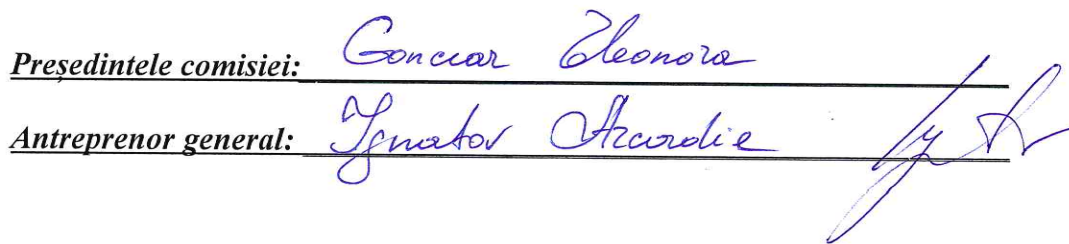 Președintele comisiei: Gonciar Eleonora
Antreprenor general: Ignatov Arcadie